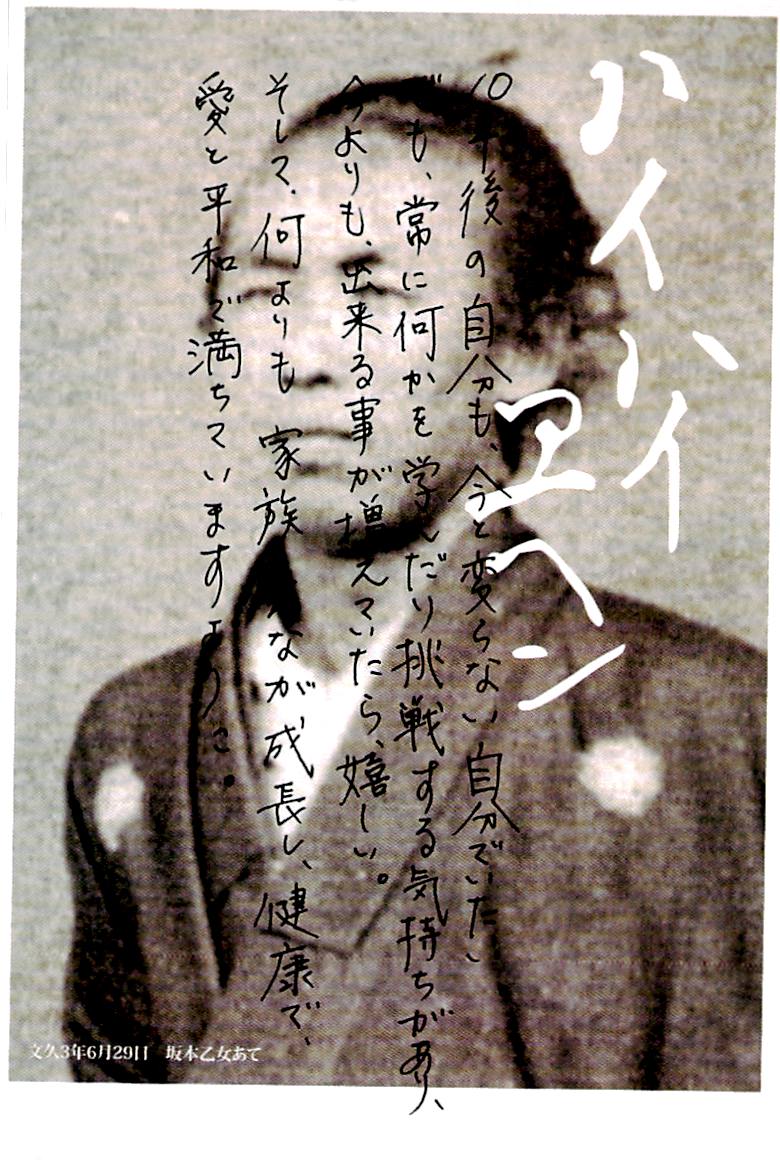 ハイハイ
ヱヘン
10年後の自分も、今と変らない自分でいたい
でも、常に何かを学んだり挑戦する気持ちがあり、
今よりも、出来る事が増えていたら、嬉しい。
そして、何よりも家族みんなが成長し、健康で、
愛と平和で満ちていますように。
文久3年6月29日 坂本乙女あて